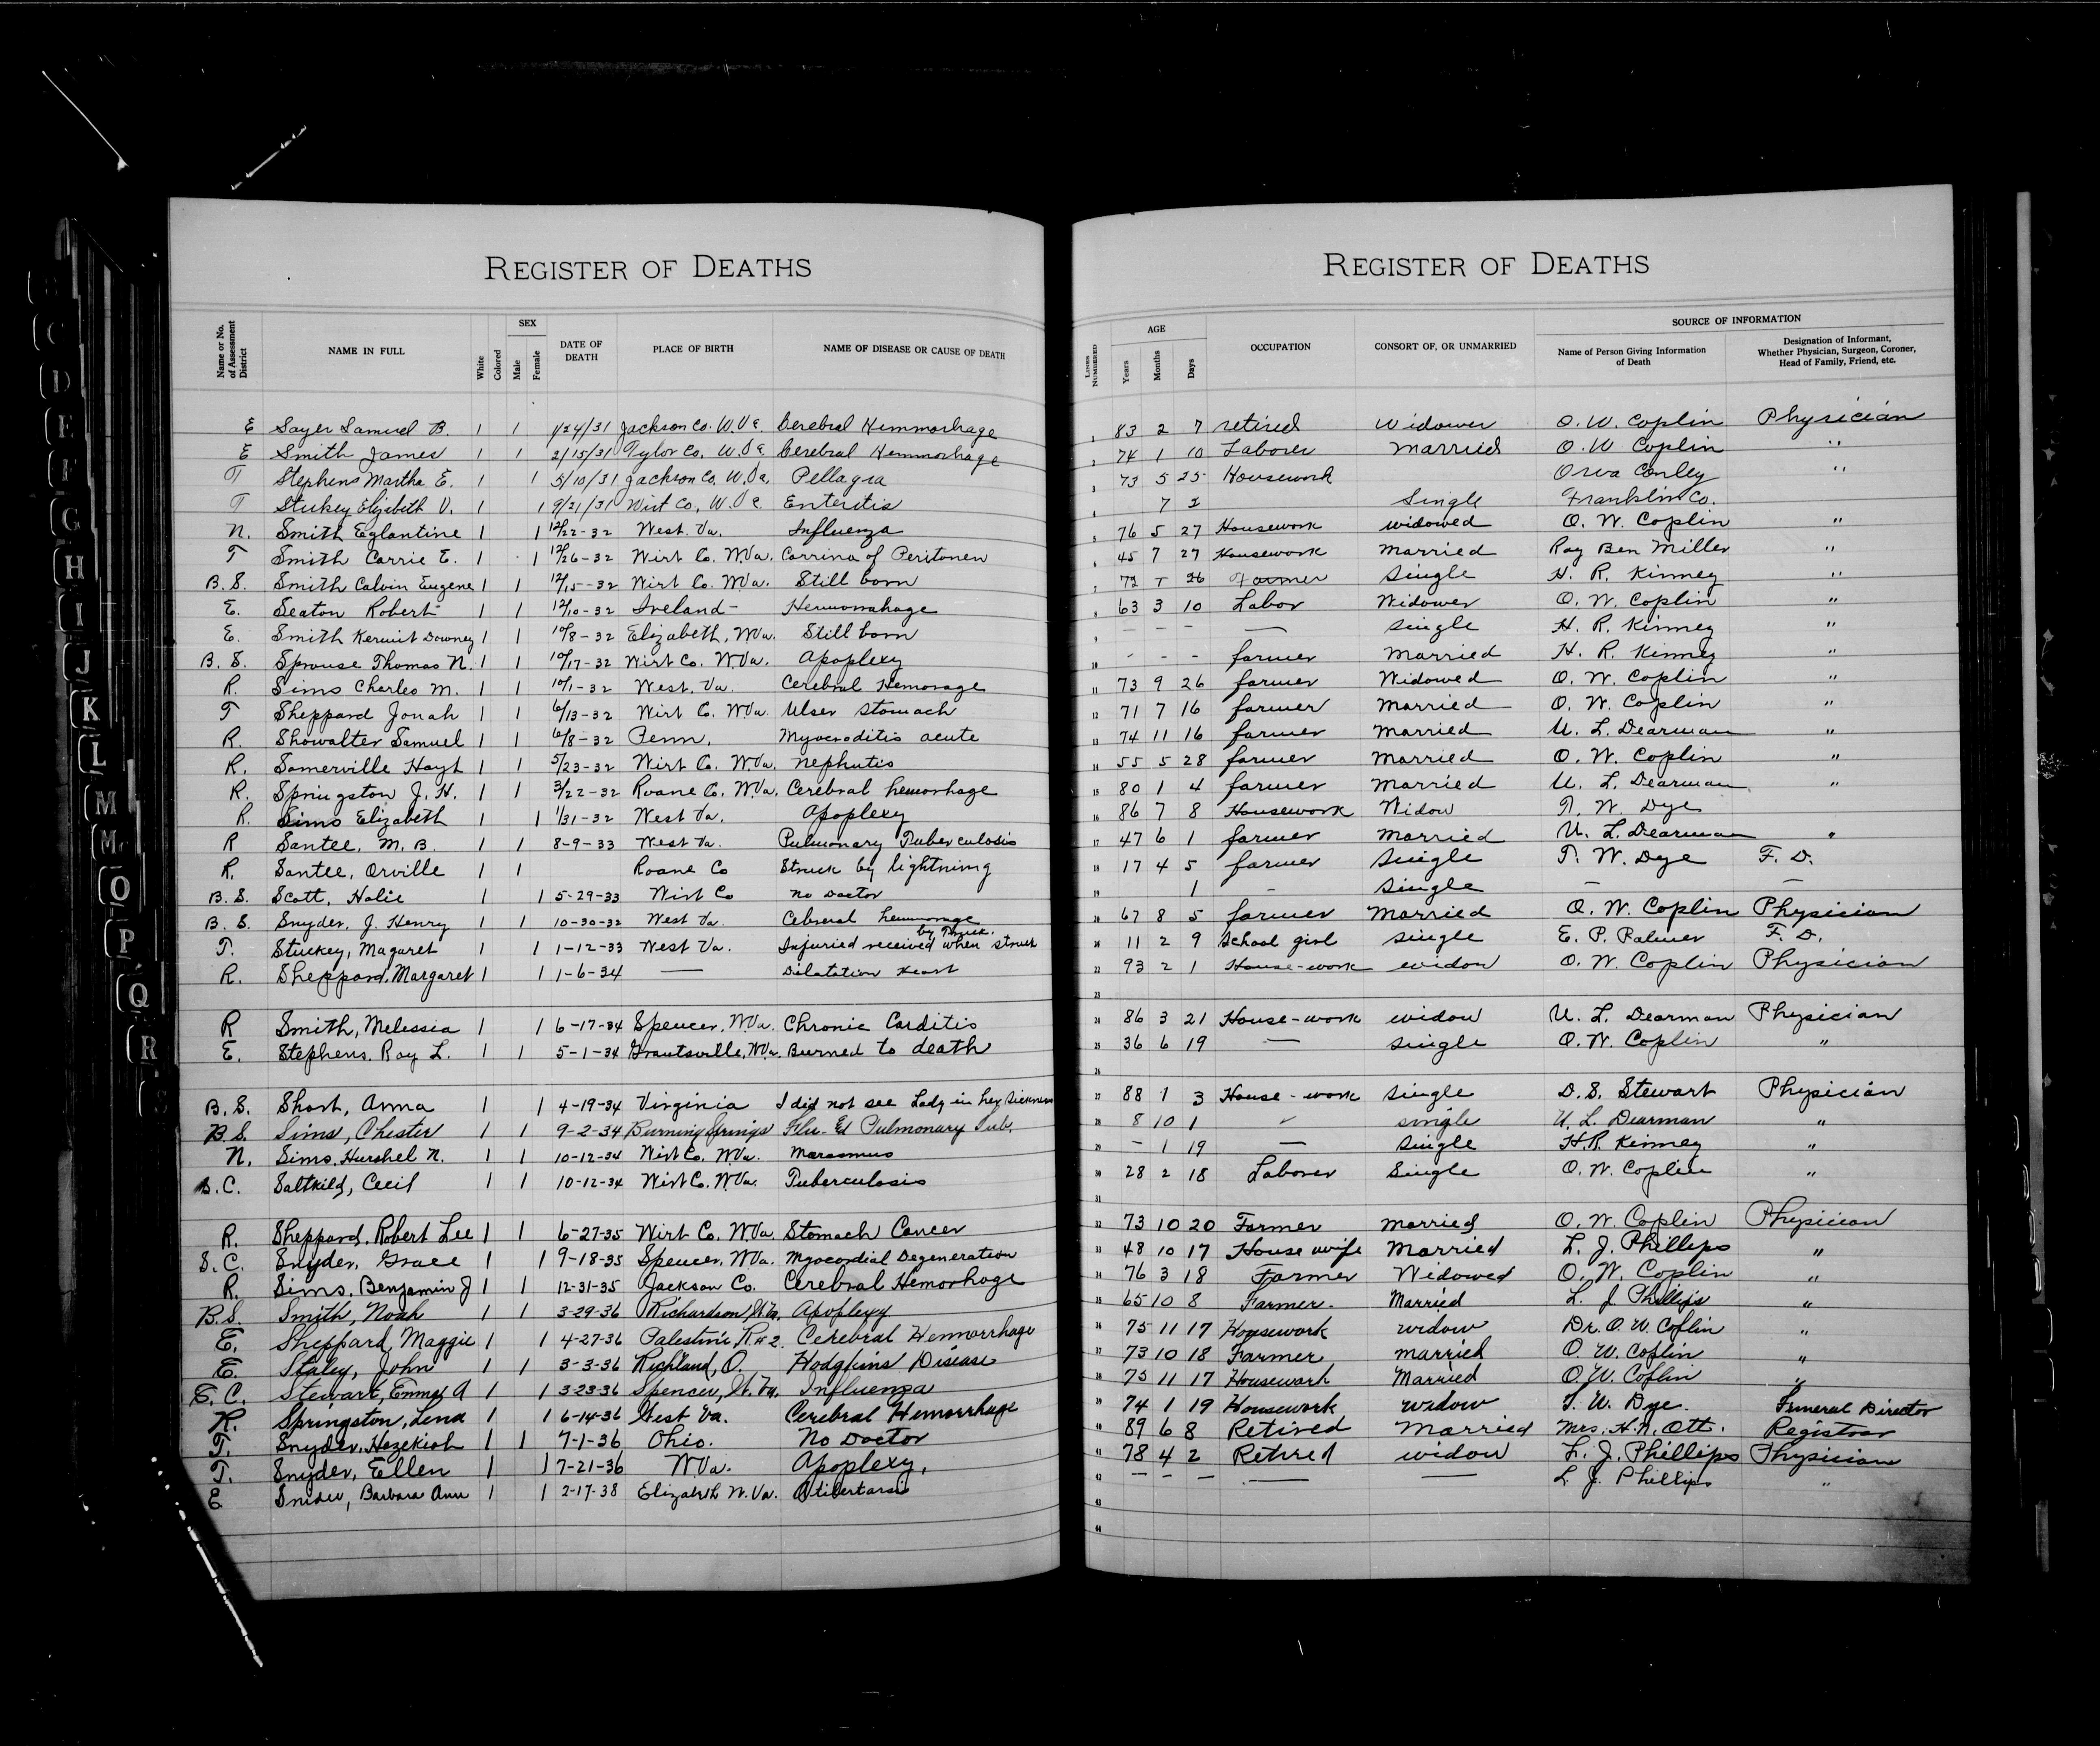 REGISTER OF DEATHS
Name or No. of Assessment District NAME IN FULL White Colored SEX Male Female DATE OF DEATH PLACE OF BIRTH NAME OF DISEASE OR CAUSE OF DEATH
E Sayer Samuel B. 1 1 1/24/31 Jackson Co. W.Va. Cerebral Hemmorhage
E Smith James 1 1 2/15/31 Tylor Co. W.Va. Cerebral Hemmorhage
T Stephens Martha E. 1 1 5/10/31 Jackson Co. W.Va. Pellagra
T Stukey Elizabeth V. 1 1 9/21/31 Wirt Co, W.Va. Enteritis
N. Smith Eglantine 1 1 12/22-32 West. Va. Influenza
T Smith Carrie E. 1 1 12/26-32 Wirt Co. W.Va. Carrina of Peritonen
B.S. Smith Calvin Eugene 1 1 12/15-32 Wirt Co. W.Va. Still born
E. Seaton Robert 1 1 12/10-32 Ireland- Hemorrahage
E. Smith Kermit Downey 1 1 10/8-32 Elizabeth, W.Va. Still born
B.S. Sprouse Thomas N. 1 1 10/17-32 Wirt Co. W.Va. Apoplexy
R. Sims Charles M. 1 1 10/1-32 West. Va. Cerebral Hemorage
T Sheppard Jonah 1 1 6/13-32 Wirt C. W.Va. Ulser stomach
R. Showalter Samuel 1 1 6/8-32 Penn. Myocroditis acute
R. Somerville Hoyt 1 1 5/23-32 Wirt Co. W.Va. Nephutis
R. Springston J. H. 1 1 3/22-32 Roane Co. W.Va. Cerebral hemorhage
R. Sims Elizabeth 1 1 1/31-32 West Va. Apoplexy
R Santee, M. B. 1 1 8-9-33 West Va. Pulmonary Tuberculosis
R. Santee, Orville 1 1 Roane Co Struck by lightning
B.S. Scott, Halie 1 1 5-29-33 Wirt Co No Doctor
B.S. Snyder, J. Henry 1 1 10-30-32 West Va. Cebreal hemmorage
T. Stuckey, Magaret 1 1 1-12-33 West Va. Injuried received when struck by Truck.
R. Sheppard, Margaret 1 1 1-6-34 — Dilatation Heart
R Smith, Melessia 1 1 6-17-34 Spencer, W.Va. Chronic Carditis
E. Stephens, Ray L. 1 1 5-1-34 Grantsville, W.Va. Burned to death
B.S. Short, Anna 1 1 4-19-34 Virginia I did not see Lady in her sickness
B.S. Sims, Chester 1 1 9-2-34 Burning Springs Flu- Ed Pulmonary Tub.
N. Sims, Hurshel N. 1 1 10-12-34 Wirt Co. W.Va. Marasmus
S.C. Saltkild, Cecil 1 1 10-12-34 Wirt Co. W.Va. Tuberculosis
R. Sheppard, Robert Lee 1 1 6-27-35 Wirt Co. W.Va. Stomach Cancer
S.C. Snyder, Grace 1 1 9-18-35 Spencer, W.Va. Myocordial Degeneration
R. Sims, Benjamin J 1 1 12-31-35 Jackson Co. Cerebral Hemorhage
B.S. Smith, Noah 1 1 3-29-36 Richardson, W.Va. Apoplexy
E. Sheppard, Maggie 1 1 4-27-36 Palestine R#2. Cerebral Hemmorrhage
E. Staley, John 1 1 3-3-36 Richland, O. Hodgkins Disease
S.C. Stewart, Emma A 1 1 3-23-36 Spencer, W.Va. Influenza
R. Springston, Lena 1 1 6-14-36 West Va. Cerebral Hemorrhage
T. Snyder, Hezekiah 1 1 7-1-36 Ohio. No Doctor
T. Snyder, Ellen 1 1 7-21-36 W.Va. Apoplexy,
E Snider, Barbara Ann 1 1 2-17-38 Elizabeth W.Va.
REGISTER OF DEATHS
LINES NUMBERED AGE Years Months Days OCCUPATION CONSORT OF, OR UNMARRIED SOURCE OF INFORMATION Name of Person Giving Information of Death Designation of Informant, Whether Physician, Surgeon, Coroner, Head of Family, Friend, etc.
1 83 2 7 retired Widower O. W. Coplin Physician
2 74 1 10 Laborer Married O. W Coplin "
3 73 5 25 Housework Orva Conley "
4 7 2 Single Franklin Co.
5 76 5 27 Housework widowed O. W. Coplin "
6 45 7 27 Housework Married Roy Ben Miller "
7 72 26 Farmer Single H. R. Kinney "
8 63 3 10 Labor Widower O. W. Coplin "
9 - - - — single H. R. Kinney "
10 - - - farmer Married H. R. Kinney "
11 73 9 26 farmer Widowed O. W. Coplin "
12 71 7 16 farmer Married O. W. Coplin "
13 74 11 16 farmer Married U. L. Dearman "
14 55 5 28 farmer Married O. W. Coplin "
15 80 1 4 farmer Married U. L. Dearman "
16 86 7 8 Housework Widow T. W. Dye
17 47 6 1 farmer Married U. L. Dearman "
18 17 4 5 farmer Single T. W. Dye F. D.
19 1 - Single — —
20 67 8 5 farmer Married O. W. Coplin Physician
21 11 2 9 School girl single E. P. Palmer F. D.
22 93 2 1 House-work widow O. W. Coplin Physician
23
24 86 3 21 House-work widow U. L. Dearman Physician
25 36 6 19 — single O. W. Coplin "
26
27 88 1 3 House-work single D. S. Stewart Physician
28 8 10 1 single U. L. Dearman "
29 - 1 19 — single H.R. Kinney "
30 28 2 18 Laborer Single O. W. Coplin "
31
32 73 10 20 Farmer married O. W. Coplin Physician
33 48 10 17 House wife Married L. J. Phillips "
34 76 3 18 Farmer Widowed O. W. Coplin "
35 65 10 8 Farmer. Married L. J. Phillips "
36 75 11 17 Housework widow Dr. O. W. Coplin "
37 73 10 18 Farmer married O. W. Coplin "
38 75 11 17 Housework Married O. W. Coplin "
39 74 1 19 Housework widow T. W. Dye. Funeral Director
40 89 6 8 Retired Married Mrs. H. N. Ott. Registrar
41 78 4 2 Retired widow L. J. Phillips Physician
42 — — — — — L. J. Phillips "
43
44
C
D
E
F
G
H
I
J
K
L
M
Mc
O
P
Q
R